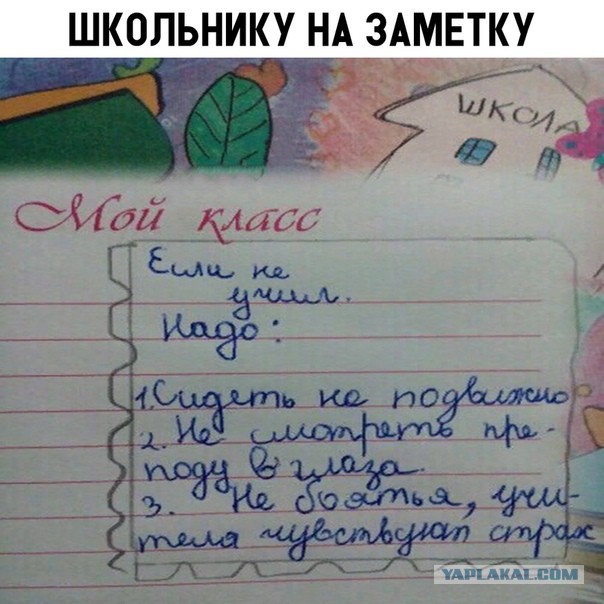 ШКОЛЬНИКУ НА ЗАМЕТКУ
ШКОЛА
Мой класс
Если не
учил.
Надо:
1. Сидеть не подвижно
2. Не смотреть пре-
поду в глаза.
3. Не бояться, учи-
теля чувствуют страх
YAPLAKAL.COM